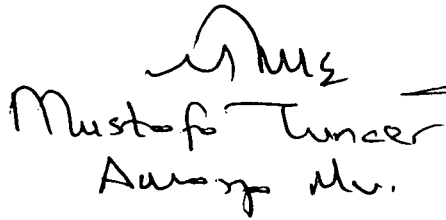 Mustafa Tuncer
Amasya Mv.